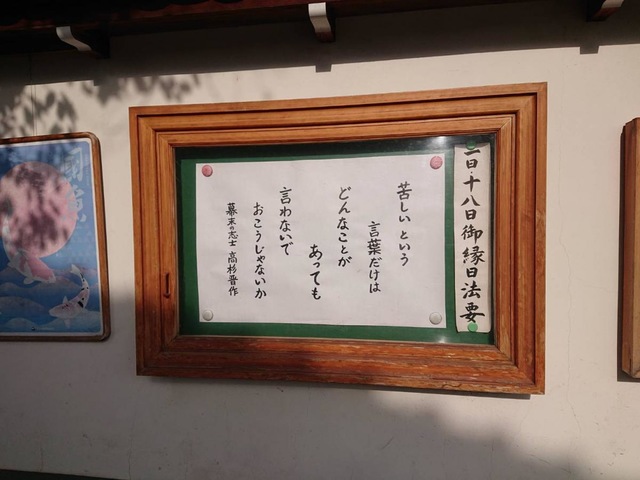 日・十八日御縁日法要
苦しいという
言葉だけは
どんなことが
あっても
言わないで
おこうじゃないか
幕末の志士 高杉晋作